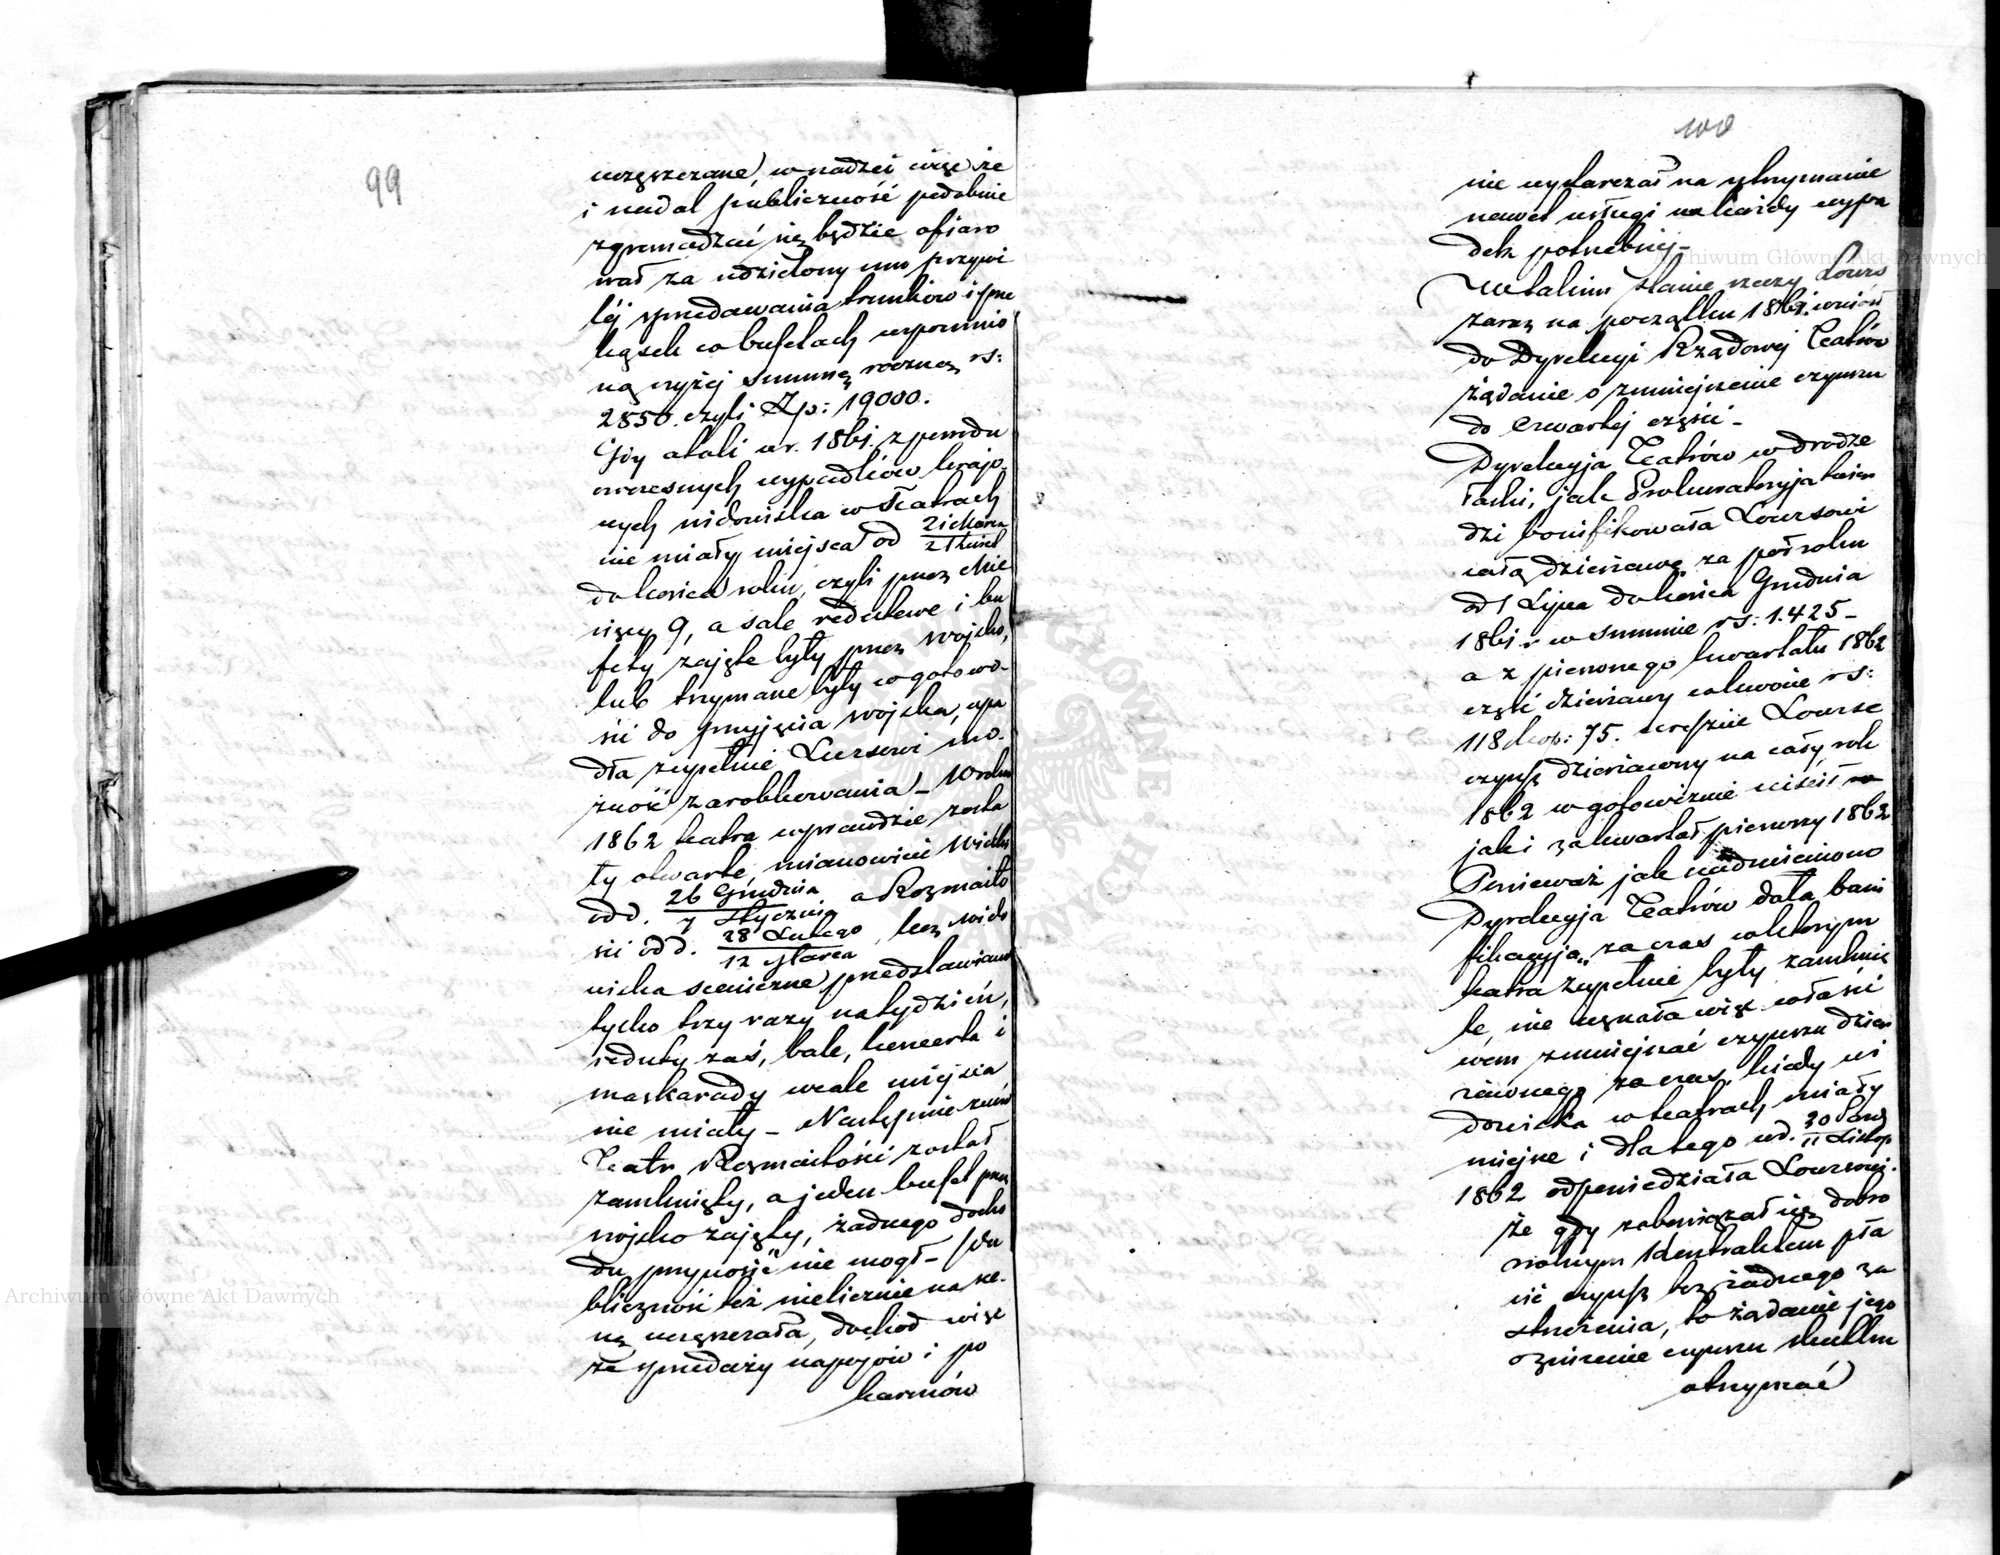 99
uczęszczane, w nadziei więc że
i nadal publiczność podobnie
zgromadzać się będzie ofiaro
wał za udzielony mu przywi
léj sprzedawania trunków i prze
kąsek w bufetach wspomnio
ną wyżéj summę roczną rs:
2850. czyli Złp: 19000.
Gdy atoli w r. 1861. z powodu
owczesnych wypadków krajo
wych widowiska w Teatrach
nie miały miejsca od 2 i Marca
21 Kwiet
do końca roku, czyli przez Mie
sięcy 9, a sale redutowe i bu
fety zajęte były przez wojsko,
lub trzymane były w gotowo-
ści do przyjęcia wojska, upa
dła zupełnie Lursowi mo-
żność zarobkowania – W roku
1862 teatra wprawdzie zosta
ły otwarte, mianowicie Wielki
od d. 26 Grudnia
7 Stycznia a Rozmaito
ści od d. 28 Lutego
12 Marca, lecz wido
wiska sceniczne przedstawiano
tylko trzy razy na tydzień,
reduty zaś, bale, koncerta i
maskarady wcale miejsca
nie miały – Następnie znów
Teatr Rozmaitości został
zamknięty, a jeden bufet przez
wojsko zajęty, żadnego docho
du przynosić nie mógł – Pu
bliczność też nielicznie na sce
nę uczęszczała, dochód więc
ze sprzedaży napojów i po
karmów
100
nie wystarczał na utrzymanie
nawet usługi na każdy wypa
dek potrzebnéj –
W takim stanie rzeczy Lours
zaraz na początku 1861. wniósł
do Dyrekcyi Rządowéj Teatrów
żądanie o zmniejszenie czynszu
do czwartéj części –
Dyrekcyja Teatrów w drodze
łaski, jak Prokuratoryja twier
dzi bonifikowała Loursowi
całą dzierżawę za pół roku
od 1 Lipca do końca Grudnia
1861 r w summie rs: 1.425 –
a z pierwszego kwartału 1862
część dzierżawy w kwocie rs:
118 kop: 75. wreszcie Lourse
czynsz dzierżawny na cały rok
1862 w gotowiznie uiścił
jak i za kwartał pierwszy 1862
Ponieważ jak nadmieniono
Dyrekcyja Teatrów dała boni
fikacyją za czas w którym
teatra zupełnie były zamknię
te, nie uznała więc właści
wem zmniejszać czynszu dzier
żawnego za czas, kiedy wi
dowiska w teatrach miały
miejsce i dla tego w d. 30 Paźdz
11 Listop
1862 odpowiedziała Loursowi.
że gdy zobowiązał się dobro
wolnym Kontraktem pła
cić czynsz bez żadnego za
strzeżenia, to żądanie jego
o zniżenie czynszu skutku
otrzymać
Archiwum Główne Akt Dawnych
Archiwum Główne Akt Dawnych